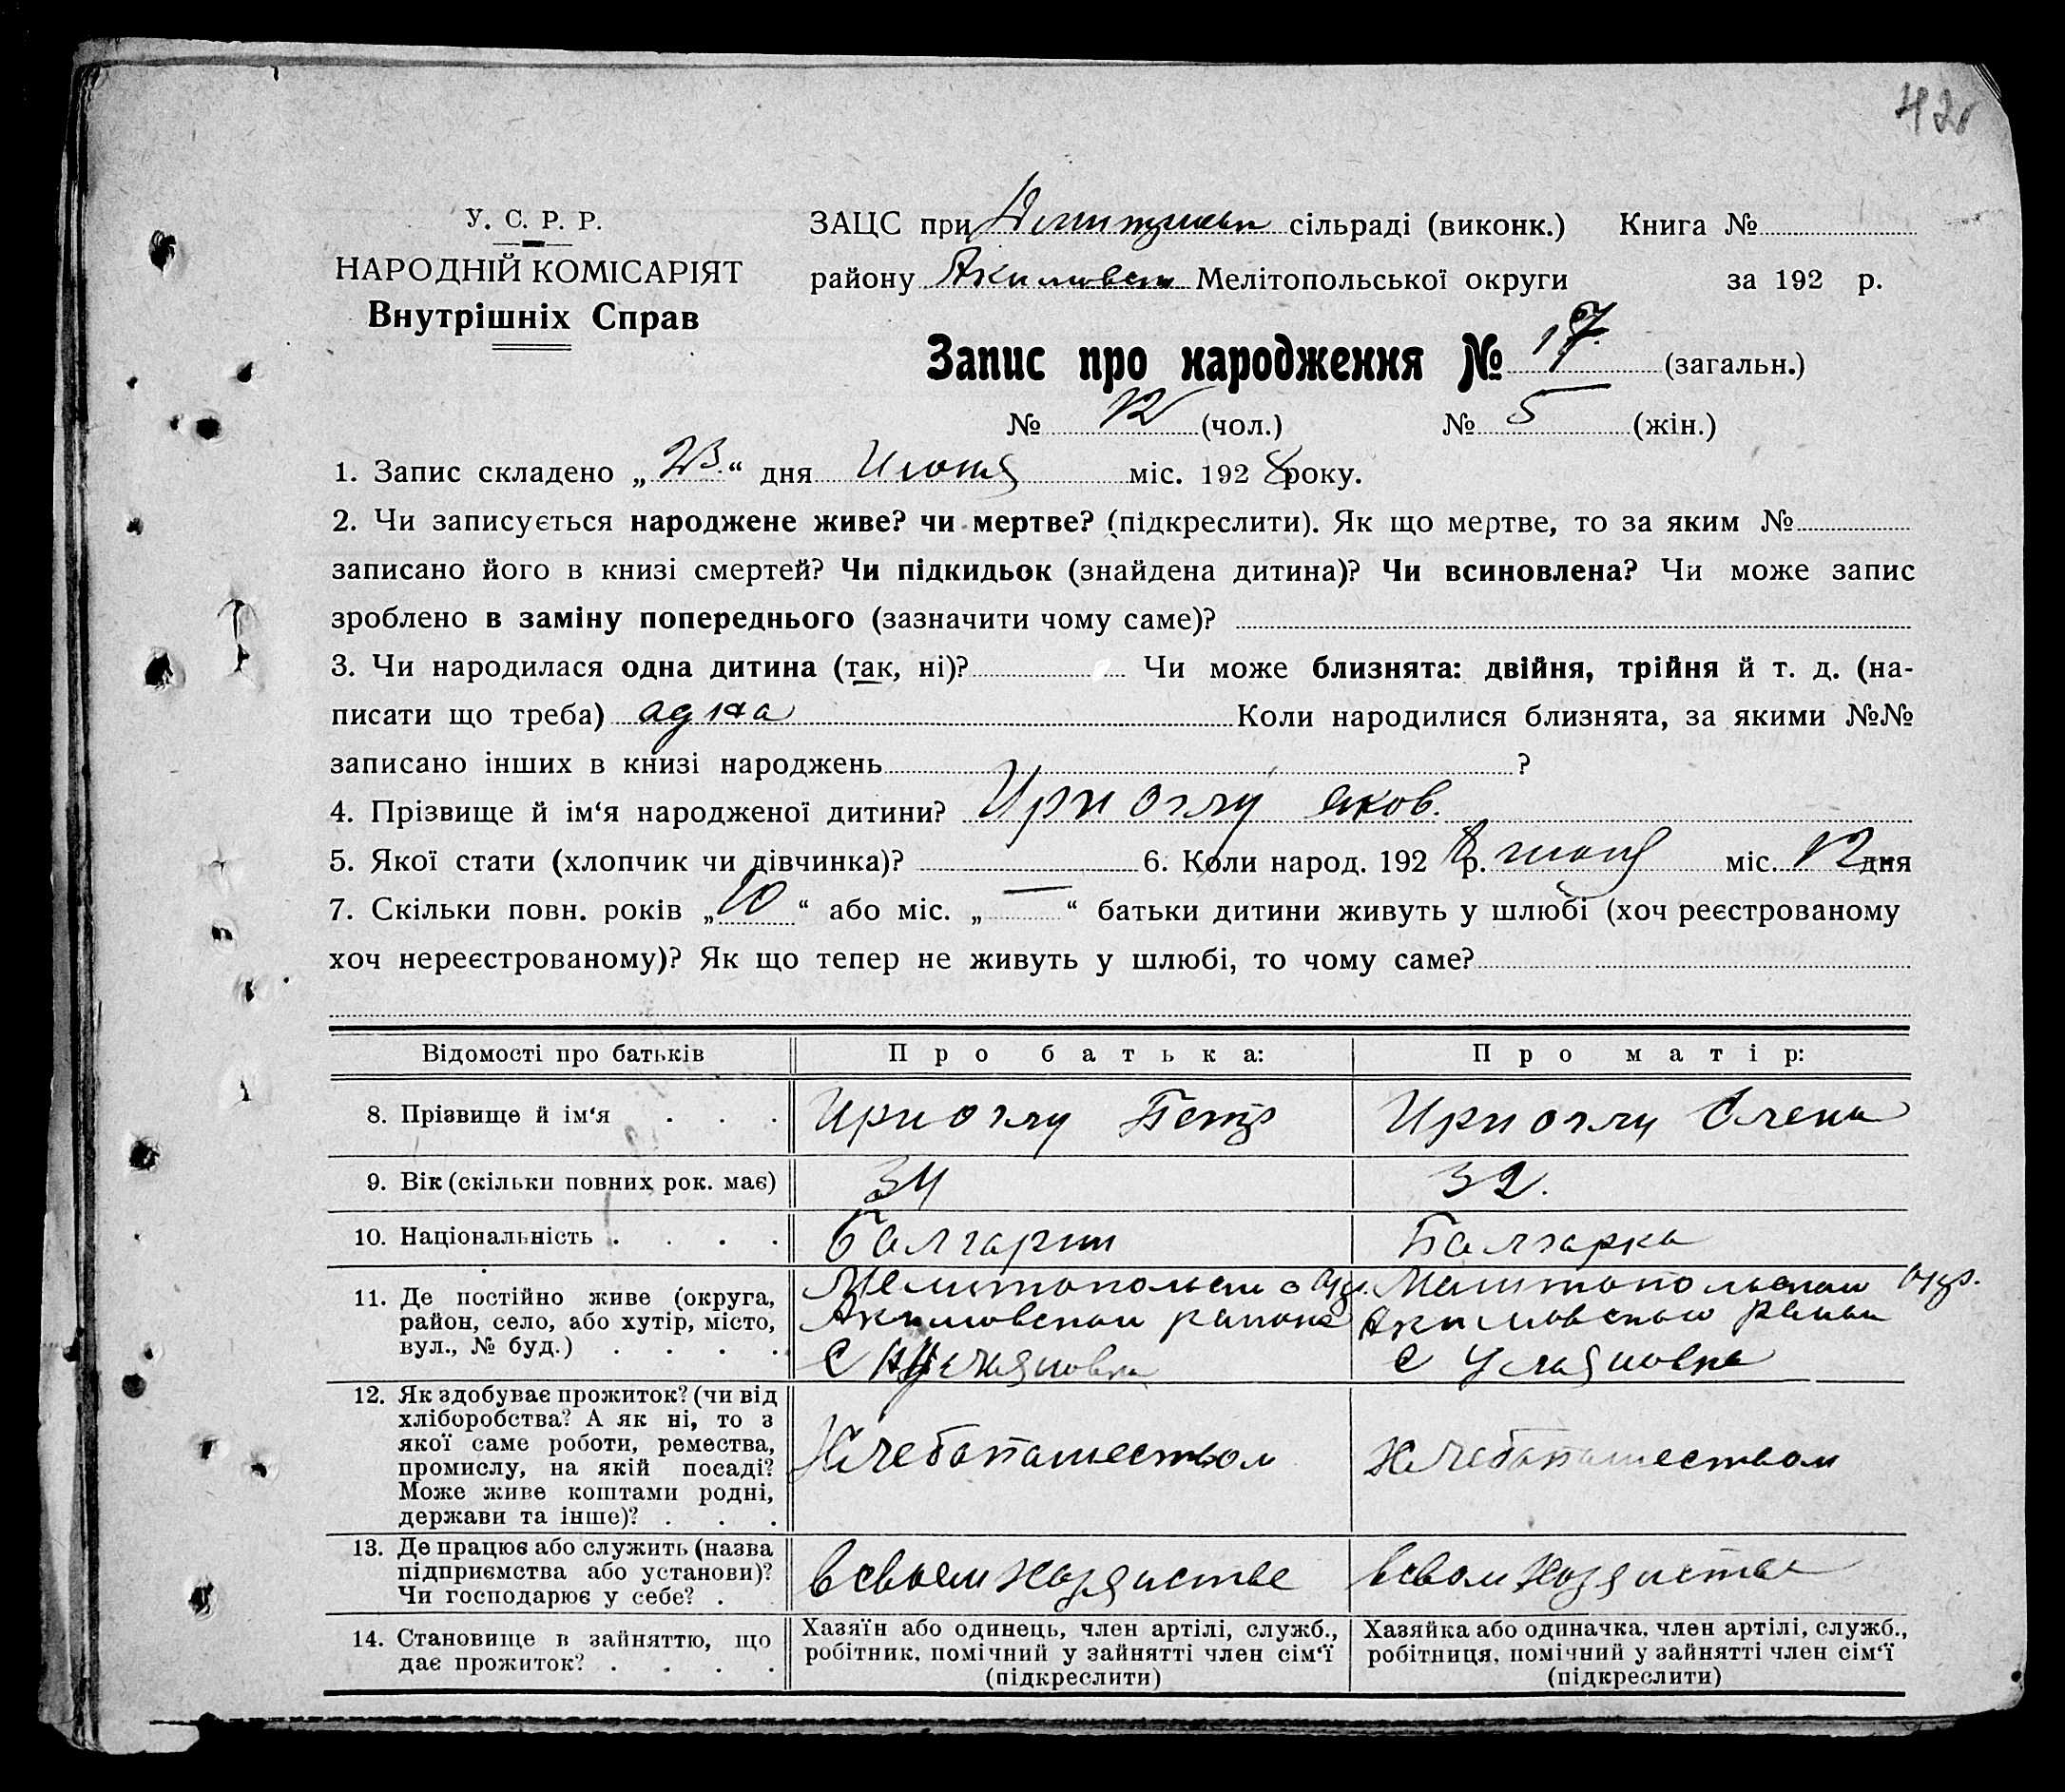 42
У. С. Р. Р.
НАРОДНІЙ КОМІСАРІЯТ
Внутрішніх Справ
ЗАЦС при сільраді (виконк.) Книга №
району Акимовск Мелітопольської округи за 192 р.
Запис про народження № 17. (загальн.)
№ 12 (чол.) № 5 (жін.)
1. Запис складено „ 23. “ дня Июня міс. 192 8 року.
2. Чи записується народжене живе? чи мертве? (підкреслити). Як що мертве, то за яким №
записано його в книзі смертей? Чи підкидьок (знайдена дитина)? Чи всиновлена? Чи може запис
зроблено в заміну попереднього (зазначити чому саме)?
3. Чи народилася одна дитина (так, ні)? Чи може близнята: двійня, трійня й т. д. (на-
писати що треба) адна Коли народилися близнята, за якими №№
записано інших в книзі народжень ?
4. Прізвище й ім‘я народженої дитини? Ириоглу Яков.
5. Якої стати (хлопчик чи дівчинка)? 6. Коли народ. 192 8 р. июня міс. 12 дня
7. Скільки повн. років „ 10 “ або міс. „ — “ батьки дитини живуть у шлюбі (хоч реєстрованому
хоч нереєстрованому)? Як що тепер не живуть у шлюбі, то чому саме?
Відомості про батьків Про батька: Про матір:
8. Прізвище й ім‘я . . . Ириоглу Петр Ириоглу Олена
9. Вік (скільки повних рок. має) 34 32.
10. Національність . . . . Болгарин Балгарка
11. Де постійно живе (округа,
район, село, або хутір, місто,
вул., № буд.) . . . .
Акимовскои раиона
С
Акимовскои
с Уляновка
12. Як здобуває прожиток? (чи від
хліборобства? А як ні, то з
якої саме роботи, ремества,
промислу, на якій посаді?
Може живе коштами родні,
держави та інше)? . . .
Хлебопашеством
хлебопашеством
13. Де працює або служить (назва
підприємства або установи)?
Чи господарює у себе? .
в своем хозяистве
в своем хозяистве
14. Становище в зайняттю, що
дає прожиток? . . . .
Хазяїн або одинець, член артілі, служб.,
робітник, помічний у зайнятті член сім‘ї
(підкреслити)
Хазяйка або одиначка, член артілі, служб.,
робітниця, помічний у зайнятті член сім‘ї
(підкреслити)